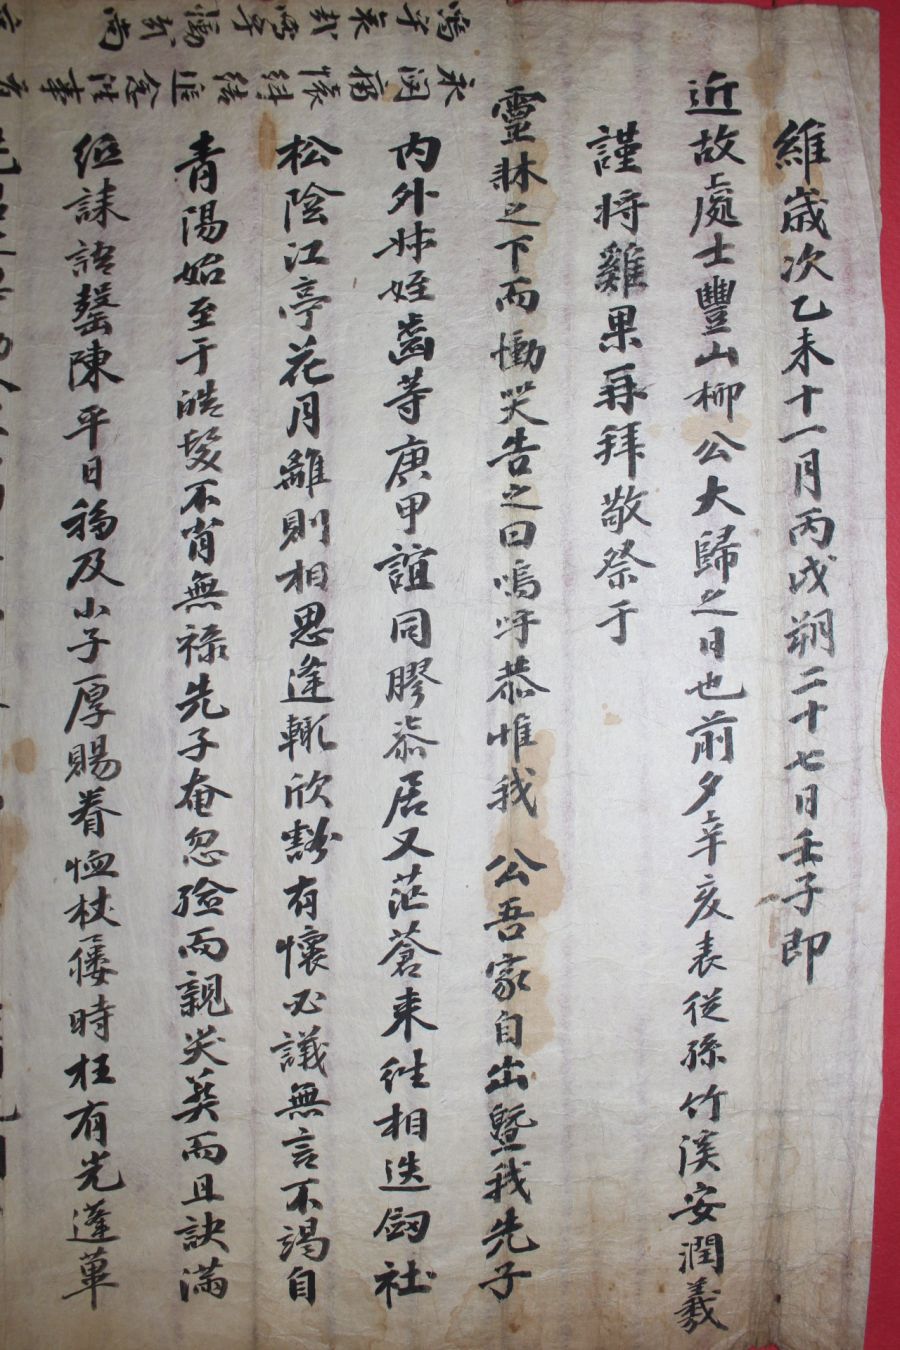 維歲次乙未十一月丙戌朔二十七日壬子即
近故處士豐山柳公大歸之日也前夕辛亥表從孫竹溪安潤羲
謹將雞果再拜敬祭于
靈牀之下而慟哭告之曰嗚呼恭惟我 公吾家自出曁我先子
內外姊姪齒等庚甲誼同膠漆居又茫蒼來往相迭劒社
松陰江亭花月離則相思逢輒欣豁有懷必議無言不竭自
青陽始至于皓髮不肖無祿先子奄忽殮而親哭葬而且訣滿
紙誄語罄陳平日禍及小子厚賜眷恤杖屨時枉有光蓬蓽
嗚乎哀哉嗚乎慟哉尚
永閟痛裒